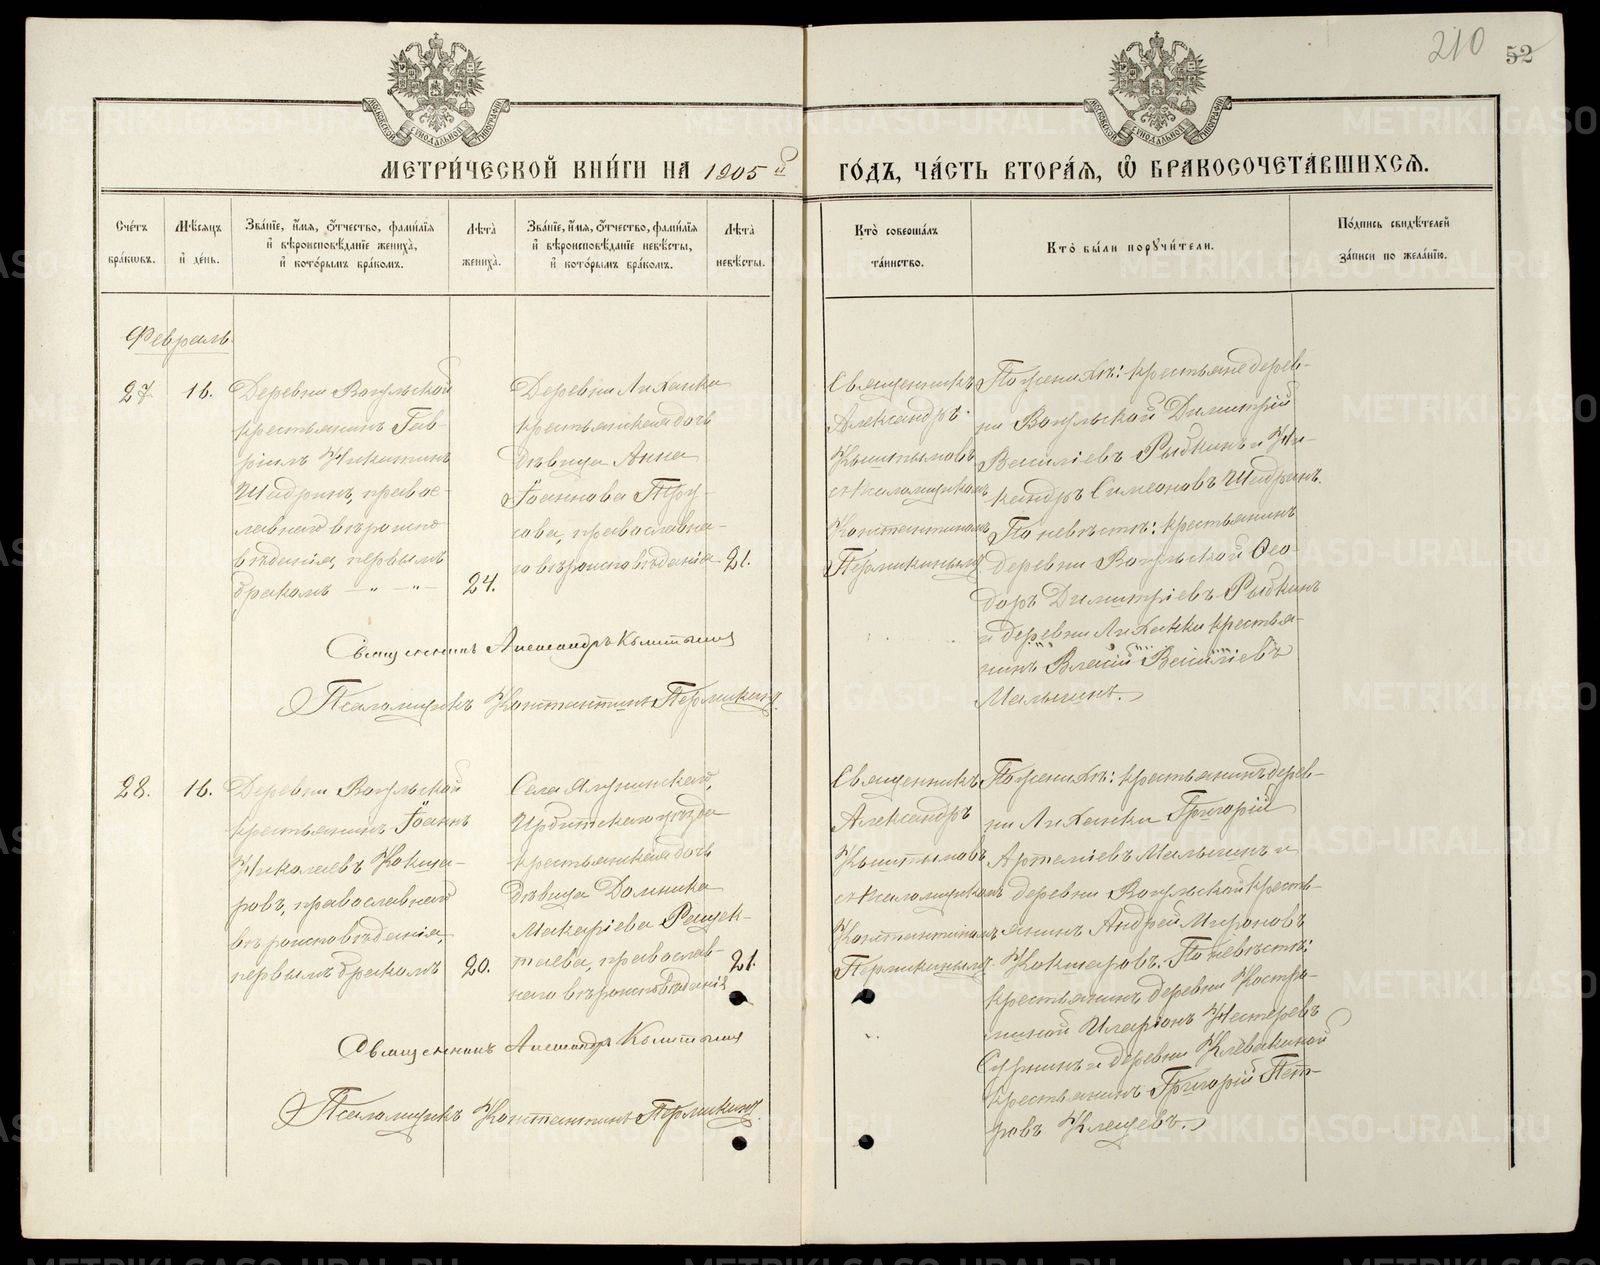 210
52
МЕТРИ́ЧЕСКОЙ КНИ́ГИ НА 1905й ГО́ДЪ, ЧА́СТЬ ВТОРА́Я, Ѿ БРАКОСОЧЕТА́ВШИХСЯ.
Сче́тъ бра́ковъ.
Мѣ́сяцъ и҆ де́нь.
Зва́нїе, и҆́мя, ѻ҆́тчество, фами́лїя
и҆ вѣроисповѣ́данїе жениха̀,
и҆ кото́рымъ бра́комъ.
Лѣ́та жениха̀.
Зва́нїе, и҆́мя, ѻ҆́тчество, фами́лїя
и҆ вѣроисповѣ́данїе невѣ́сты,
и҆ кото́рымъ бра́комъ.
Лѣ́та невѣ́сты.
Кто̀ соверша́лъ
та́инство.
Кто̀ бы́ли порꙋчи́тели.
По́дпись свидѣ́телей
за́писи по жела́нїю.
Февраль.
27
16.
Деревни Вогульской
крестьянинъ Гав-
рiилъ Никитинъ
Шадринъ, правос-
лавнаго вѣроиспо
вѣданія, первымъ
бракомъ — „ — „ —
24.
Деревни Ляханка
крестьянская дочь
дѣвица Анна
Іоаннова
сова, православна-
го вѣроисповѣданія
21.
Священникъ
Александръ
Кыштымовъ
съ псаломщикомъ
Константиномъ
Пермикинымъ
По женихѣ: крестьяне дерев-
ни Вогульской Димитрій
Василіевъ Рыбкинъ и Ни-
кандръ Симеоновъ Шадринъ.
По невѣстѣ: крестьянинъ
деревни Вогульской Ѳео-
доръ Димитріевъ Рыбкинъ
и деревни Ляханки крестья-
нинъ Власій Василіевъ
Малыгинъ.
Священникъ Александръ Кыштымовъ
Псаломщикъ Константинъ Пермикинъ
28.
16.
Деревни Вогульской
крестьянинъ Іоаннъ
Николаевъ Кокша-
ровъ, православнаго
вѣроисповѣданія,
первымъ бракомъ
20.
Села
Ирбитскаго уѣзда
крестьянская дочь
дѣвица Домника
Макаріева
православ-
наго вѣроисповѣданія
21.
Священникъ
Александръ
Кыштымовъ
съ псаломщикомъ
Константиномъ
Пермикинымъ
По женихѣ: крестьянинъ дерев-
ни Ляханки Григорій
Артеміевъ Малыгинъ и
деревни Вогульской кресть-
янинъ Андрей Мироновъ
Кокшаровъ. По невѣстѣ:
крестьянинъ деревни Костро-
миной Иларіонъ Нестеровъ
и деревни Клевакиной
крестьянинъ Григорій Пет-
ровъ Клещевъ.
Священникъ Александръ Кыштымовъ
Псаломщикъ Константинъ Пермикинъ
METRIKI.GASO-URAL.RU